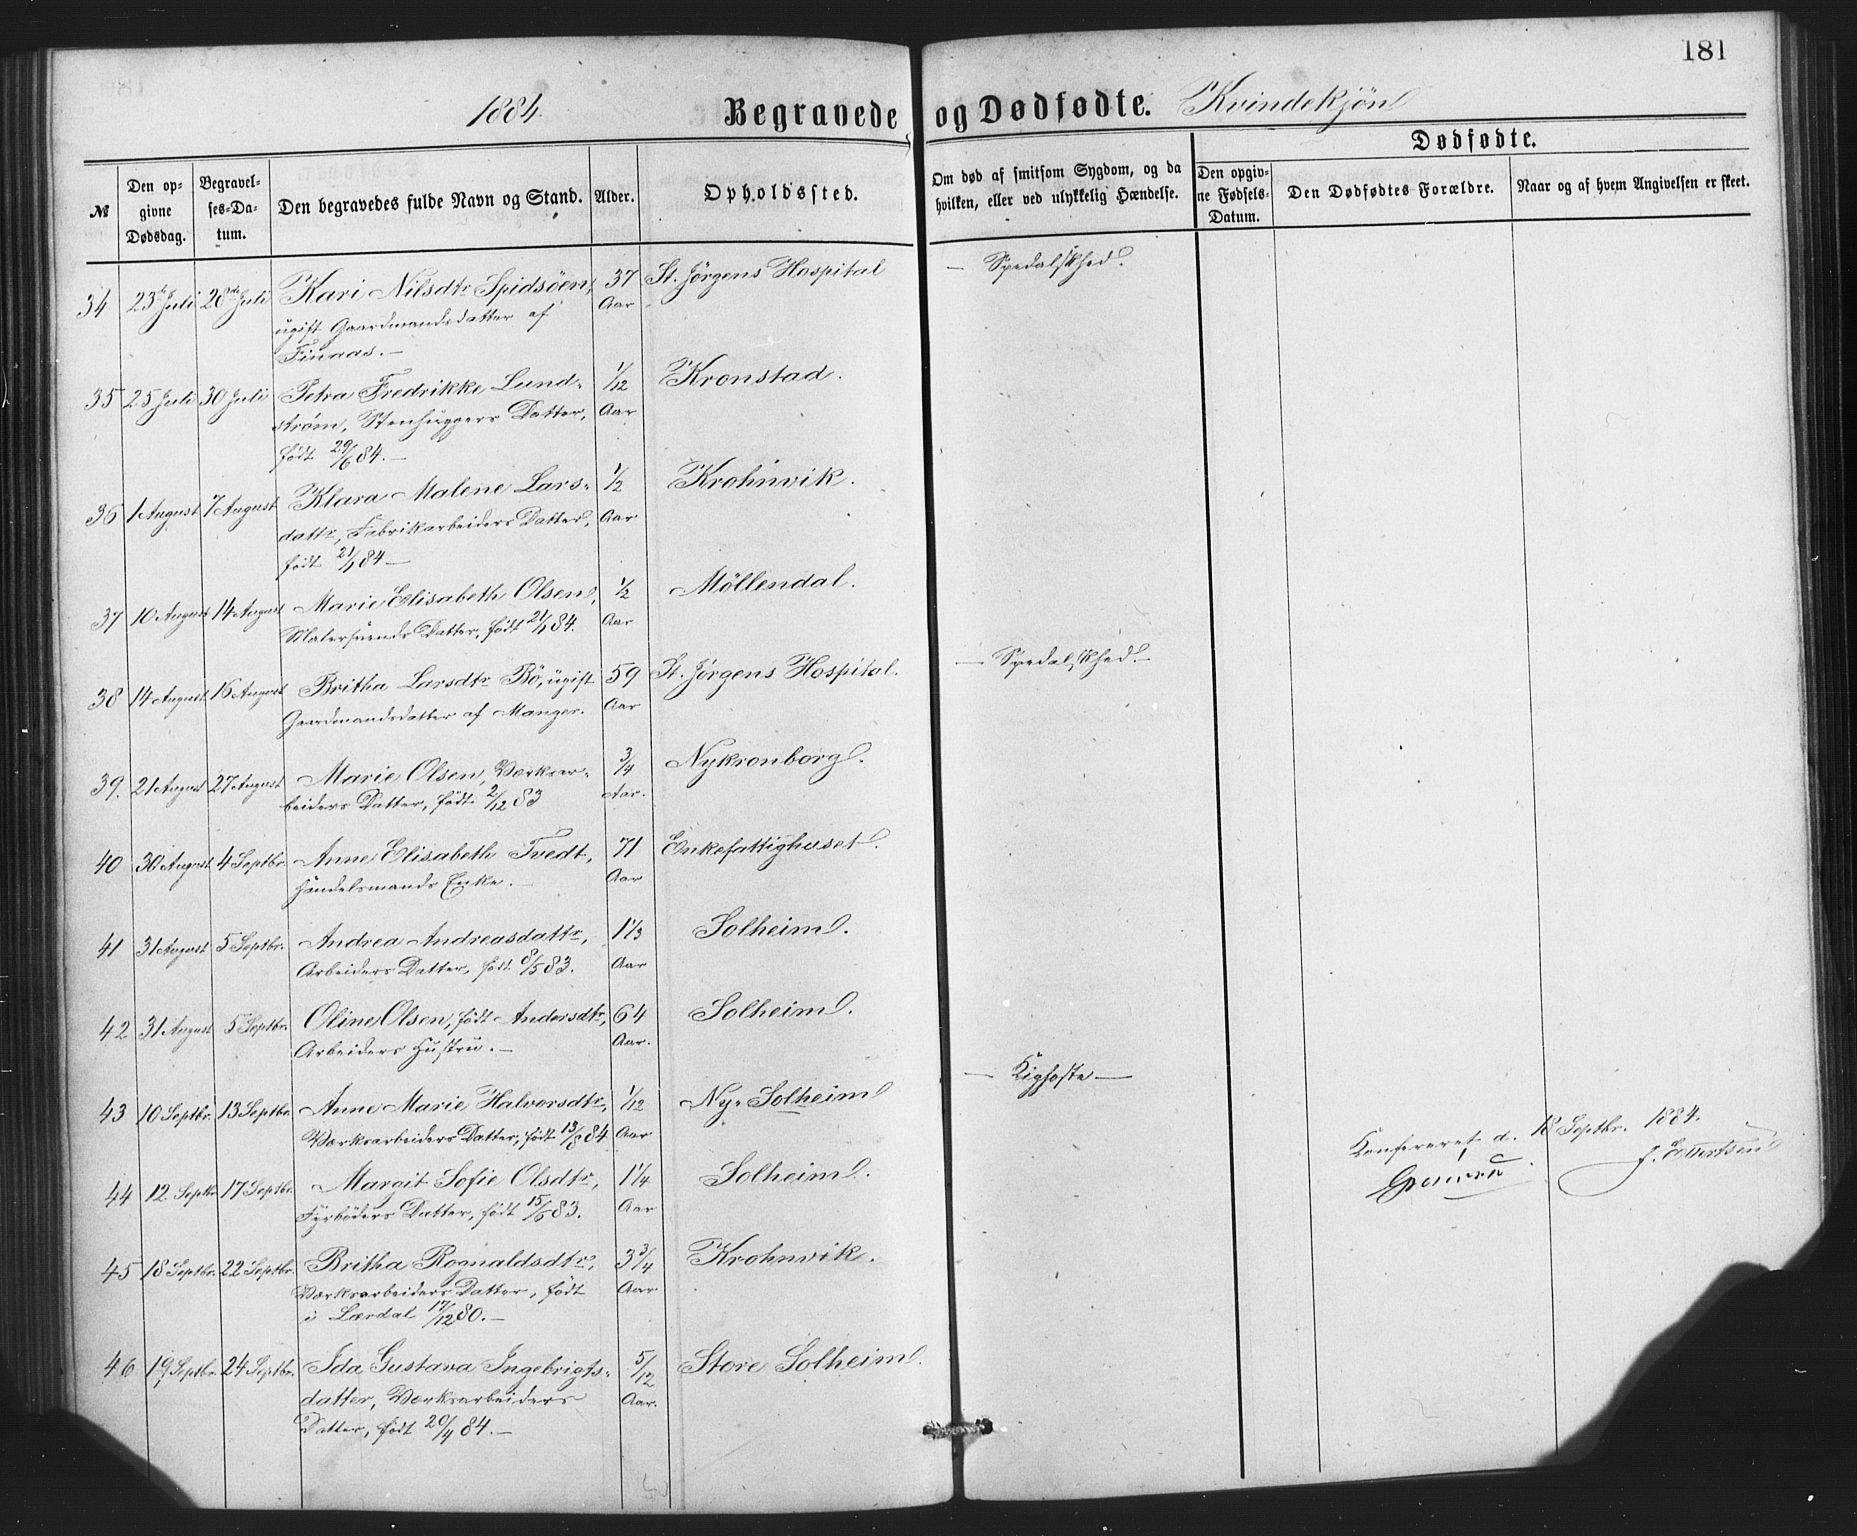 181
1884. Begravede og Dødfødte. Kvindekjøn
№
Den opgivne Dødsdag.
Begravelses-Datum.
Den begravedes fulde Navn og Stand.
Alder.
Opholdssted.
Om død af smitsom Sygdom, og da hvilken, eller ved ulykkelig Hændelse.
Dødfødte.
Den opgivne Fødsels-Datum.
Den Dødfødtes Forældre.
Naar og af hvem Angivelsen er skeet.
34 23de Juli 28de Juli Kari Nilsdtr Spidsöen, 37 St. Jørgens Hospital — Spedalskhed.
ugift Gaardmandsdatter af Aar
Finaas. —
35 25 Juli 30 Juli Petra Fredrikke Lund- 1/12 Kronstad.
strøm, Stenhuggers Datter, Aar
født 29/6 84. —
36 1 August 7 August Klara Malene Lars- 1/2 Krohnvik.
dattr, Fabrikarbeiders Datter, Aar
født 21/1 84 —
37 10 August 14 August Marie Elisabeth Olsen, 1/2 Möllendal.
Malersvends Datter, født 21/1 84. Aar
38 14 August 16 August Britha Larsdtr Bö, ugift 59 St. Jørgens Hospital. — Spedalskhed. —
Gaardmandsdatter af Manger. Aar
39. 21 August 27 August Marie Olsen, Værksar- 3/4 Nykronborg.
beiders Datter, født 2/12 83 Aar.
40 30 August 4 Septbr. Anne Elisabeth Tvedt, 71 Enkefattighuset.
Handelsmands Enke. — Aar
41 31 August 5 Septbr. Andrea Andreasdattr, 1 1/3 Solheim.
Arbeiders Datter, født 8/5 83. Aar
42 31 August 5 Septbr. Oline Olsen, født Andersdtr, 64 Solheim.
Arbeiders Hustru. — Aar.
43 10 Septbr. 13 Septbr. Anne Marie Halvorsdtr, 1/12 Ny-Solheim — Kighoste —
Værksarbeiders Datter, født 13/8 84 Aar
Konfereret d. 18 Septbr. 1884.
44 12 Septbr 17 Septbr. Margit Sofie Olsdtr, 1 1/4 Solheim.
Fyrbøders Datter, født 15/6 83. Aar
45 18 Septbr. 22 Septbr. Britha Rognaldsdtr, 3 3/4 Krohnvik.
Værksarbeiders Datter, født Aar
i Lærdal 17/12 80. —
46 19 Septbr. 24 Septbr. Ida Gustava Ingebrigts- 5/12 Store Solheim.
datter, Værksarbeiders Aar.
Datter, født 20/4 84. —